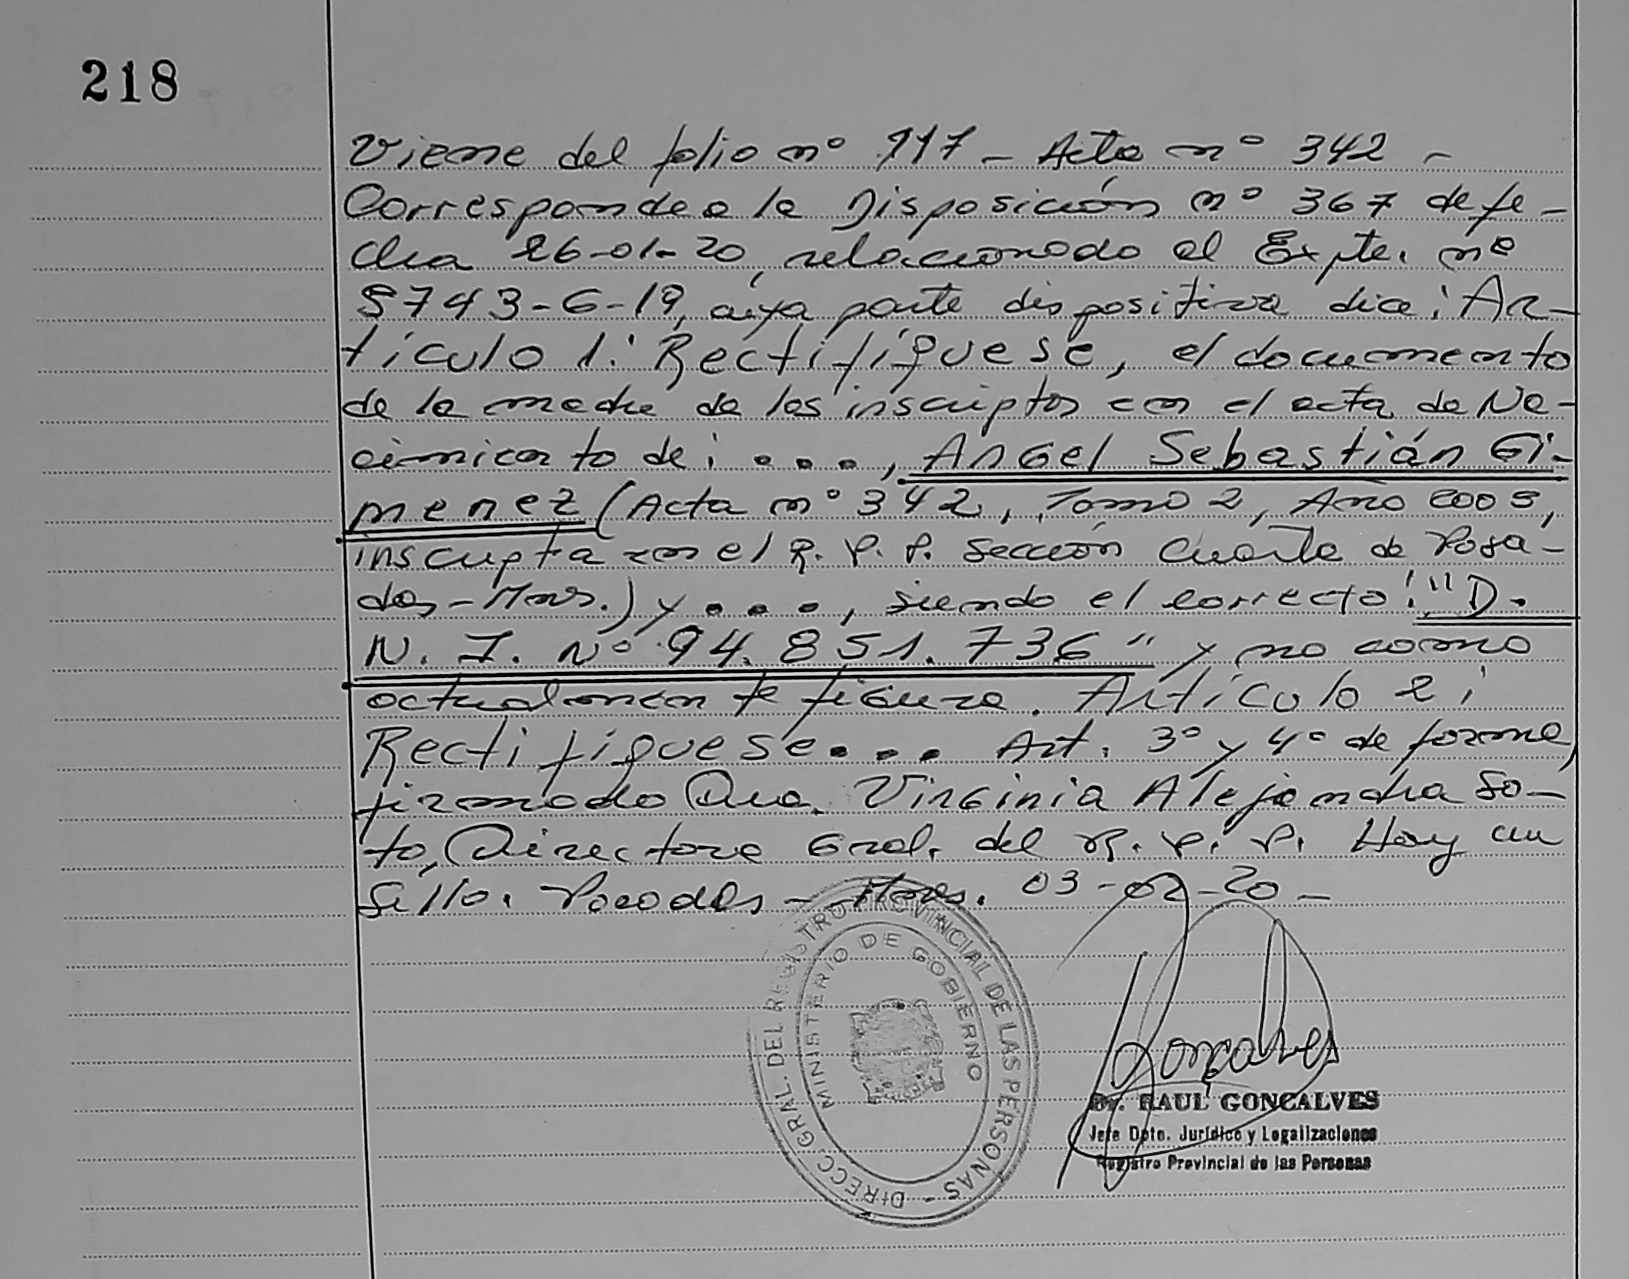 218
Viene del folio nº 117 - Acta nº 342 -
Corresponde a la Disposición nº 367 de fe-
cha 26-01-20, relacionado al Expte. nº
8743-G-19, cuya parte dispositiva dice: Ar-
tículo 1: Rectifíquese, el documento
de la madre de los inscriptos en el acta de Na-
cimiento de: ..., Angel Sebastián Gi-
menez (Acta nº 342, Tomo 2, Año 2005,
inscripta en el R. P. P. Sección Cuarta de Posa-
das - Mnes.) y ..., siendo el correcto: "D.
N. I. Nº 94.851.736" y no como
actualmente figura. Artículo 2:
Rectifíquese... Art. 3º y 4º de forma,
firmado Dra. Virginia Alejandra So-
to, Directora Gral. del R. P. P. Hay un
Sello. Posadas - Mnes. 03-02-20 -
DIRECC. GRAL. DEL REGISTRO PROVINCIAL DE LAS PERSONAS -
MINISTERIO DE GOBIERNO
Gonçalves
Dr. RAUL GONÇALVES
Jefe Dpto. Jurídico y Legalizaciones
Registro Provincial de las Personas